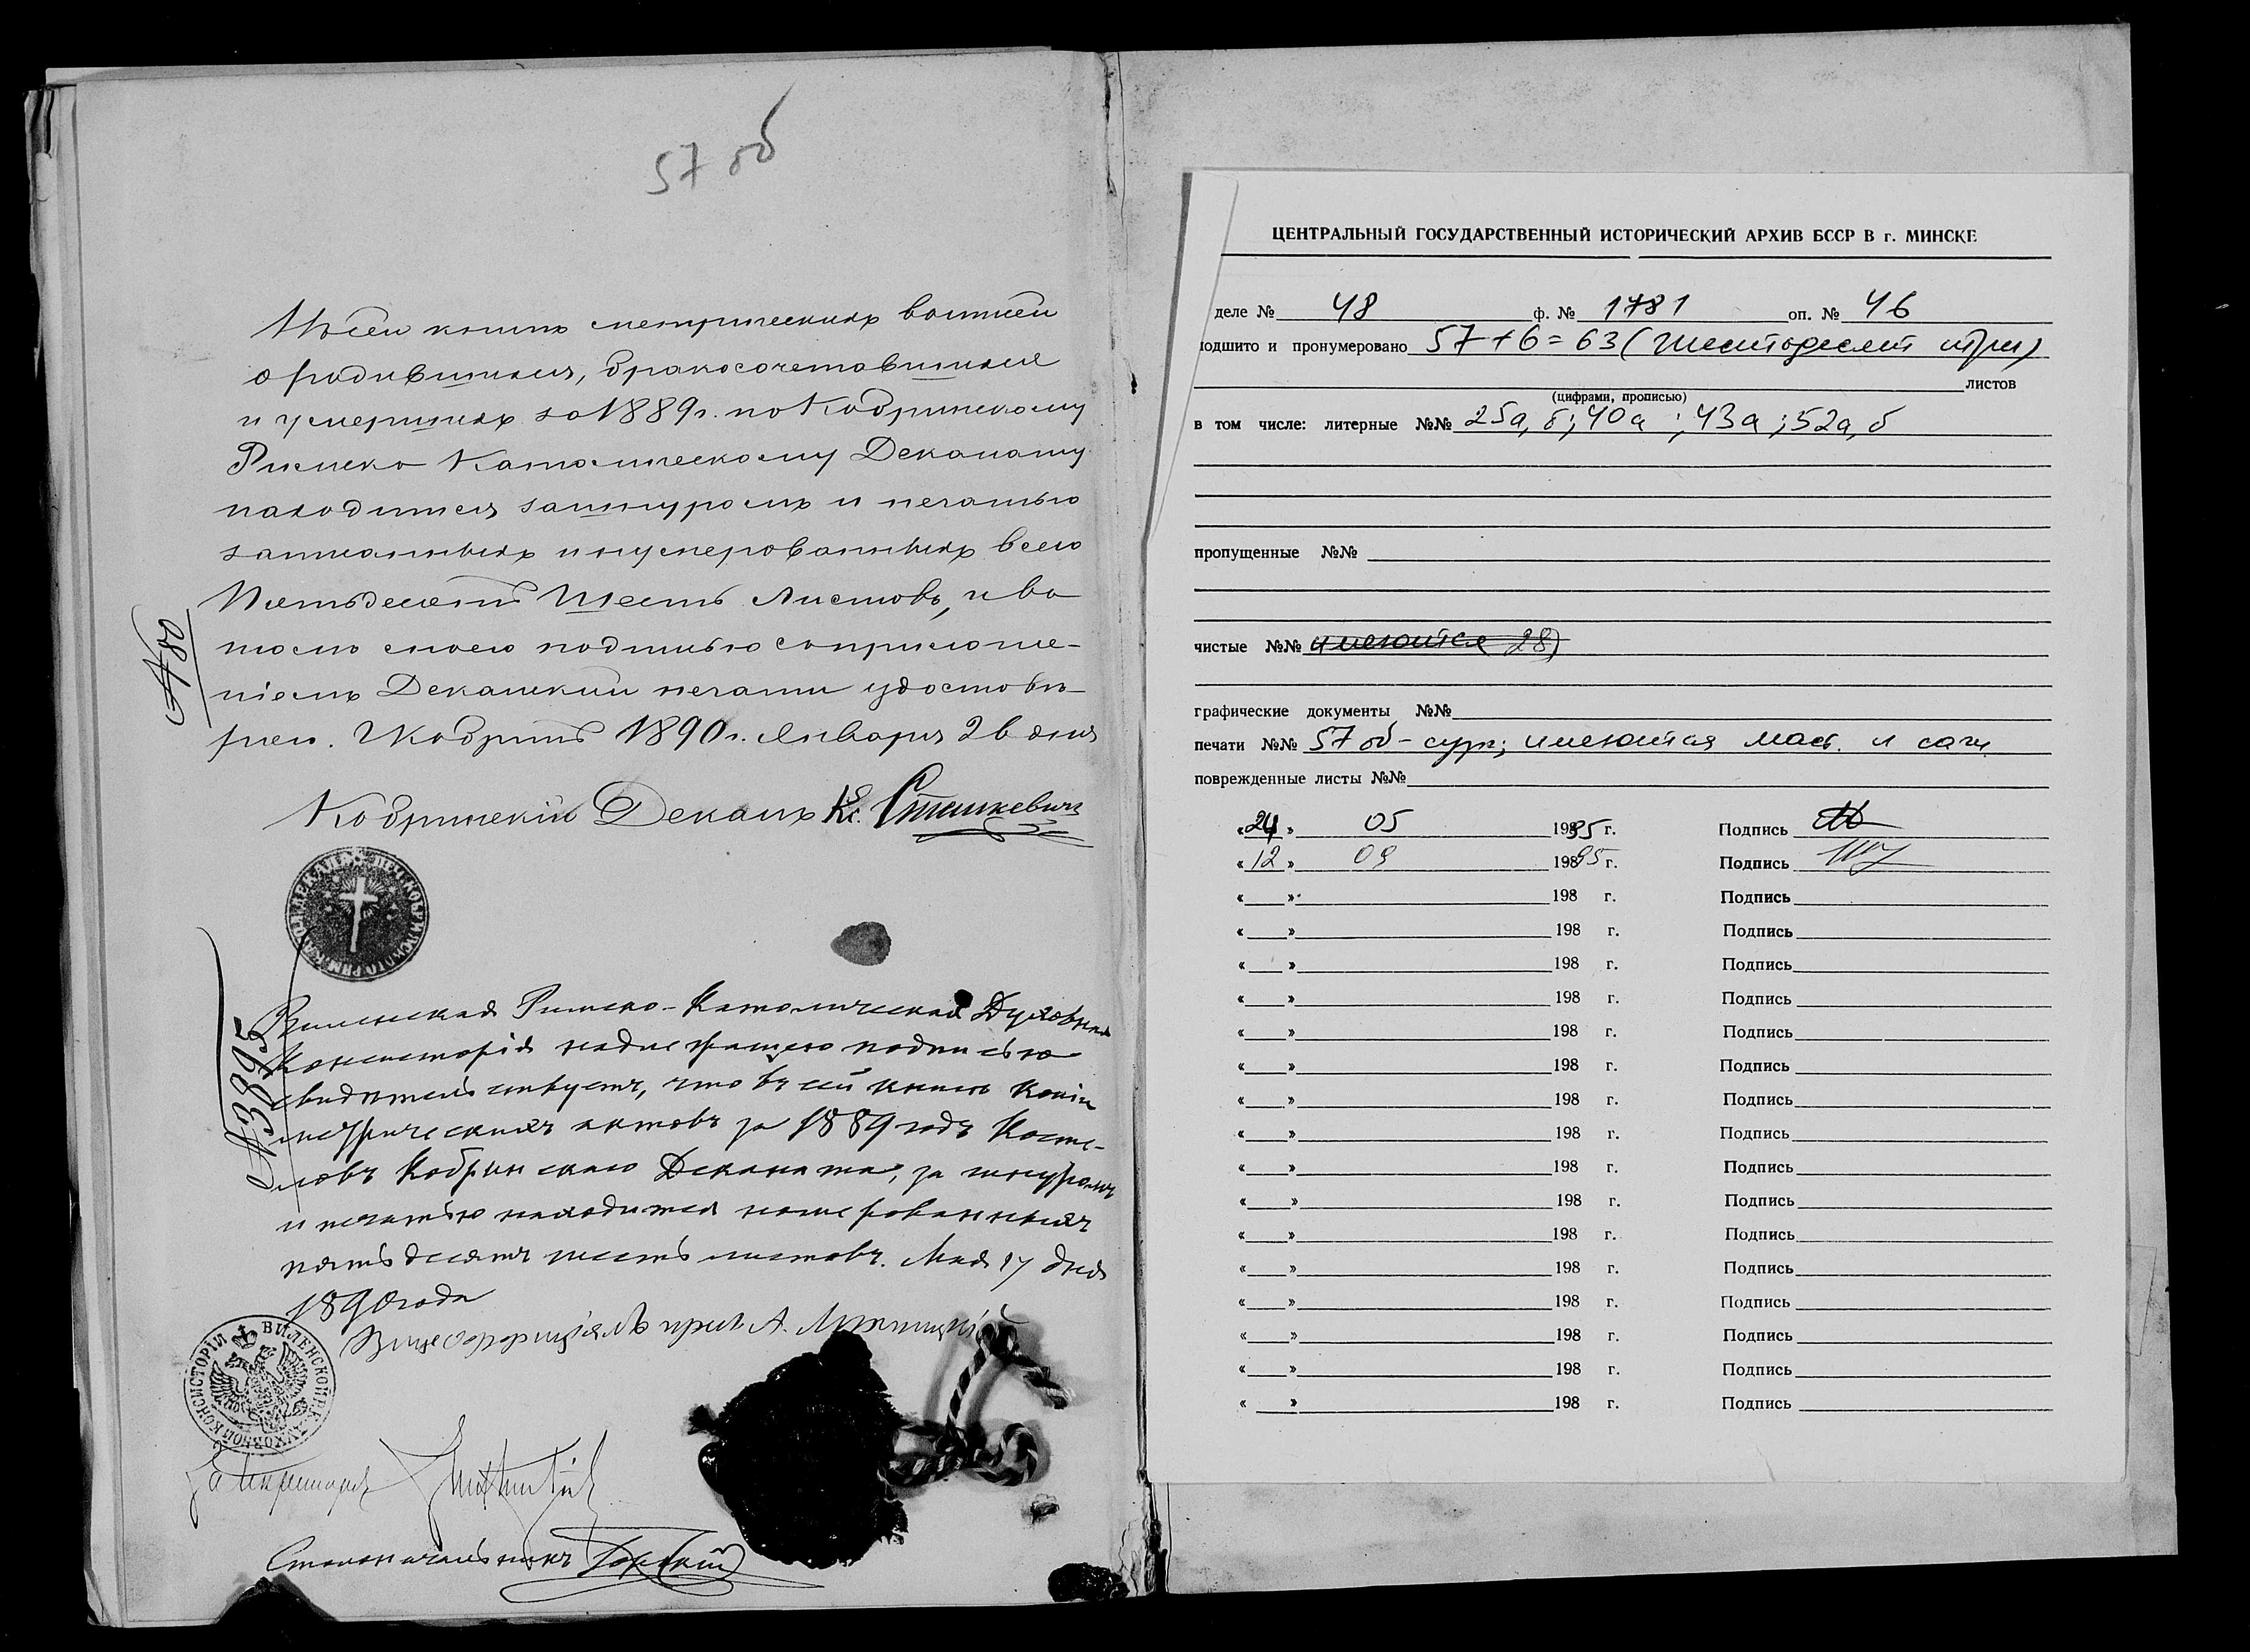 57 об
Въ сей книгѣ метрическихъ выписей
о родившихся, бракосочетавшихся
и умершихъ за 1889 г. по Кобринскому
Римско Католическому Деканату
находится за шнуромъ и печатью
записанныхъ и нумерованныхъ всего
Пятьдесятъ Шесть Листовъ, и въ
томъ моею подписью съ приложе-
ніемъ Деканской печати удостовѣ-
ряю. Г. Кобринъ 1890 г. Января 2 дня
№ 80
Кобринскій Деканъ Кс. Сташкевичъ
Виленская Римско-Католическая Духовная
Консисторія надлежащею подписью
свидѣтельствуетъ, что въ сей книгѣ копіи
метрическихъ актовъ за 1889 годъ Косте-
ловъ Кобринскаго Деканата, за шнуромъ
и печатью находится номерованныхъ
пятьдесятъ шесть листовъ. Мая 17 дня
1890 года
№ 3895
Вицеофиціалъ прел. А.
ВИЛЕНСКОЙ Р. К. ДУХОВНОЙ КОНСИСТОРІИ
За Секретаря
Столоначальникъ
ЦЕНТРАЛЬНЫЙ ГОСУДАРСТВЕННЫЙ ИСТОРИЧЕСКИЙ АРХИВ БССР В г. МИНСКЕ
деле № 48 ф. № 1781 оп. № 46
подшито и пронумеровано 57+6=63 (шестьдесят три)
листов
(цифрами, прописью)
в том числе: литерные №№ 25а, б; 40а; 43а; 52а, б
пропущенные №№
чистые №№ имеются 28)
графические документы №№
печати №№ 57 об - сург; имеются маст. и саж.
поврежденные листы №№
«24» 05 1995 г. Подпись
«12» 09 1995 г. Подпись
« » 198 г. Подпись
« » 198 г. Подпись
« » 198 г. Подпись
« » 198 г. Подпись
« » 198 г. Подпись
« » 198 г. Подпись
« » 198 г. Подпись
« » 198 г. Подпись
« » 198 г. Подпись
« » 198 г. Подпись
« » 198 г. Подпись
« » 198 г. Подпись
« » 198 г. Подпись
« » 198 г. Подпись
« » 198 г. Подпись
« » 198 г. Подпись